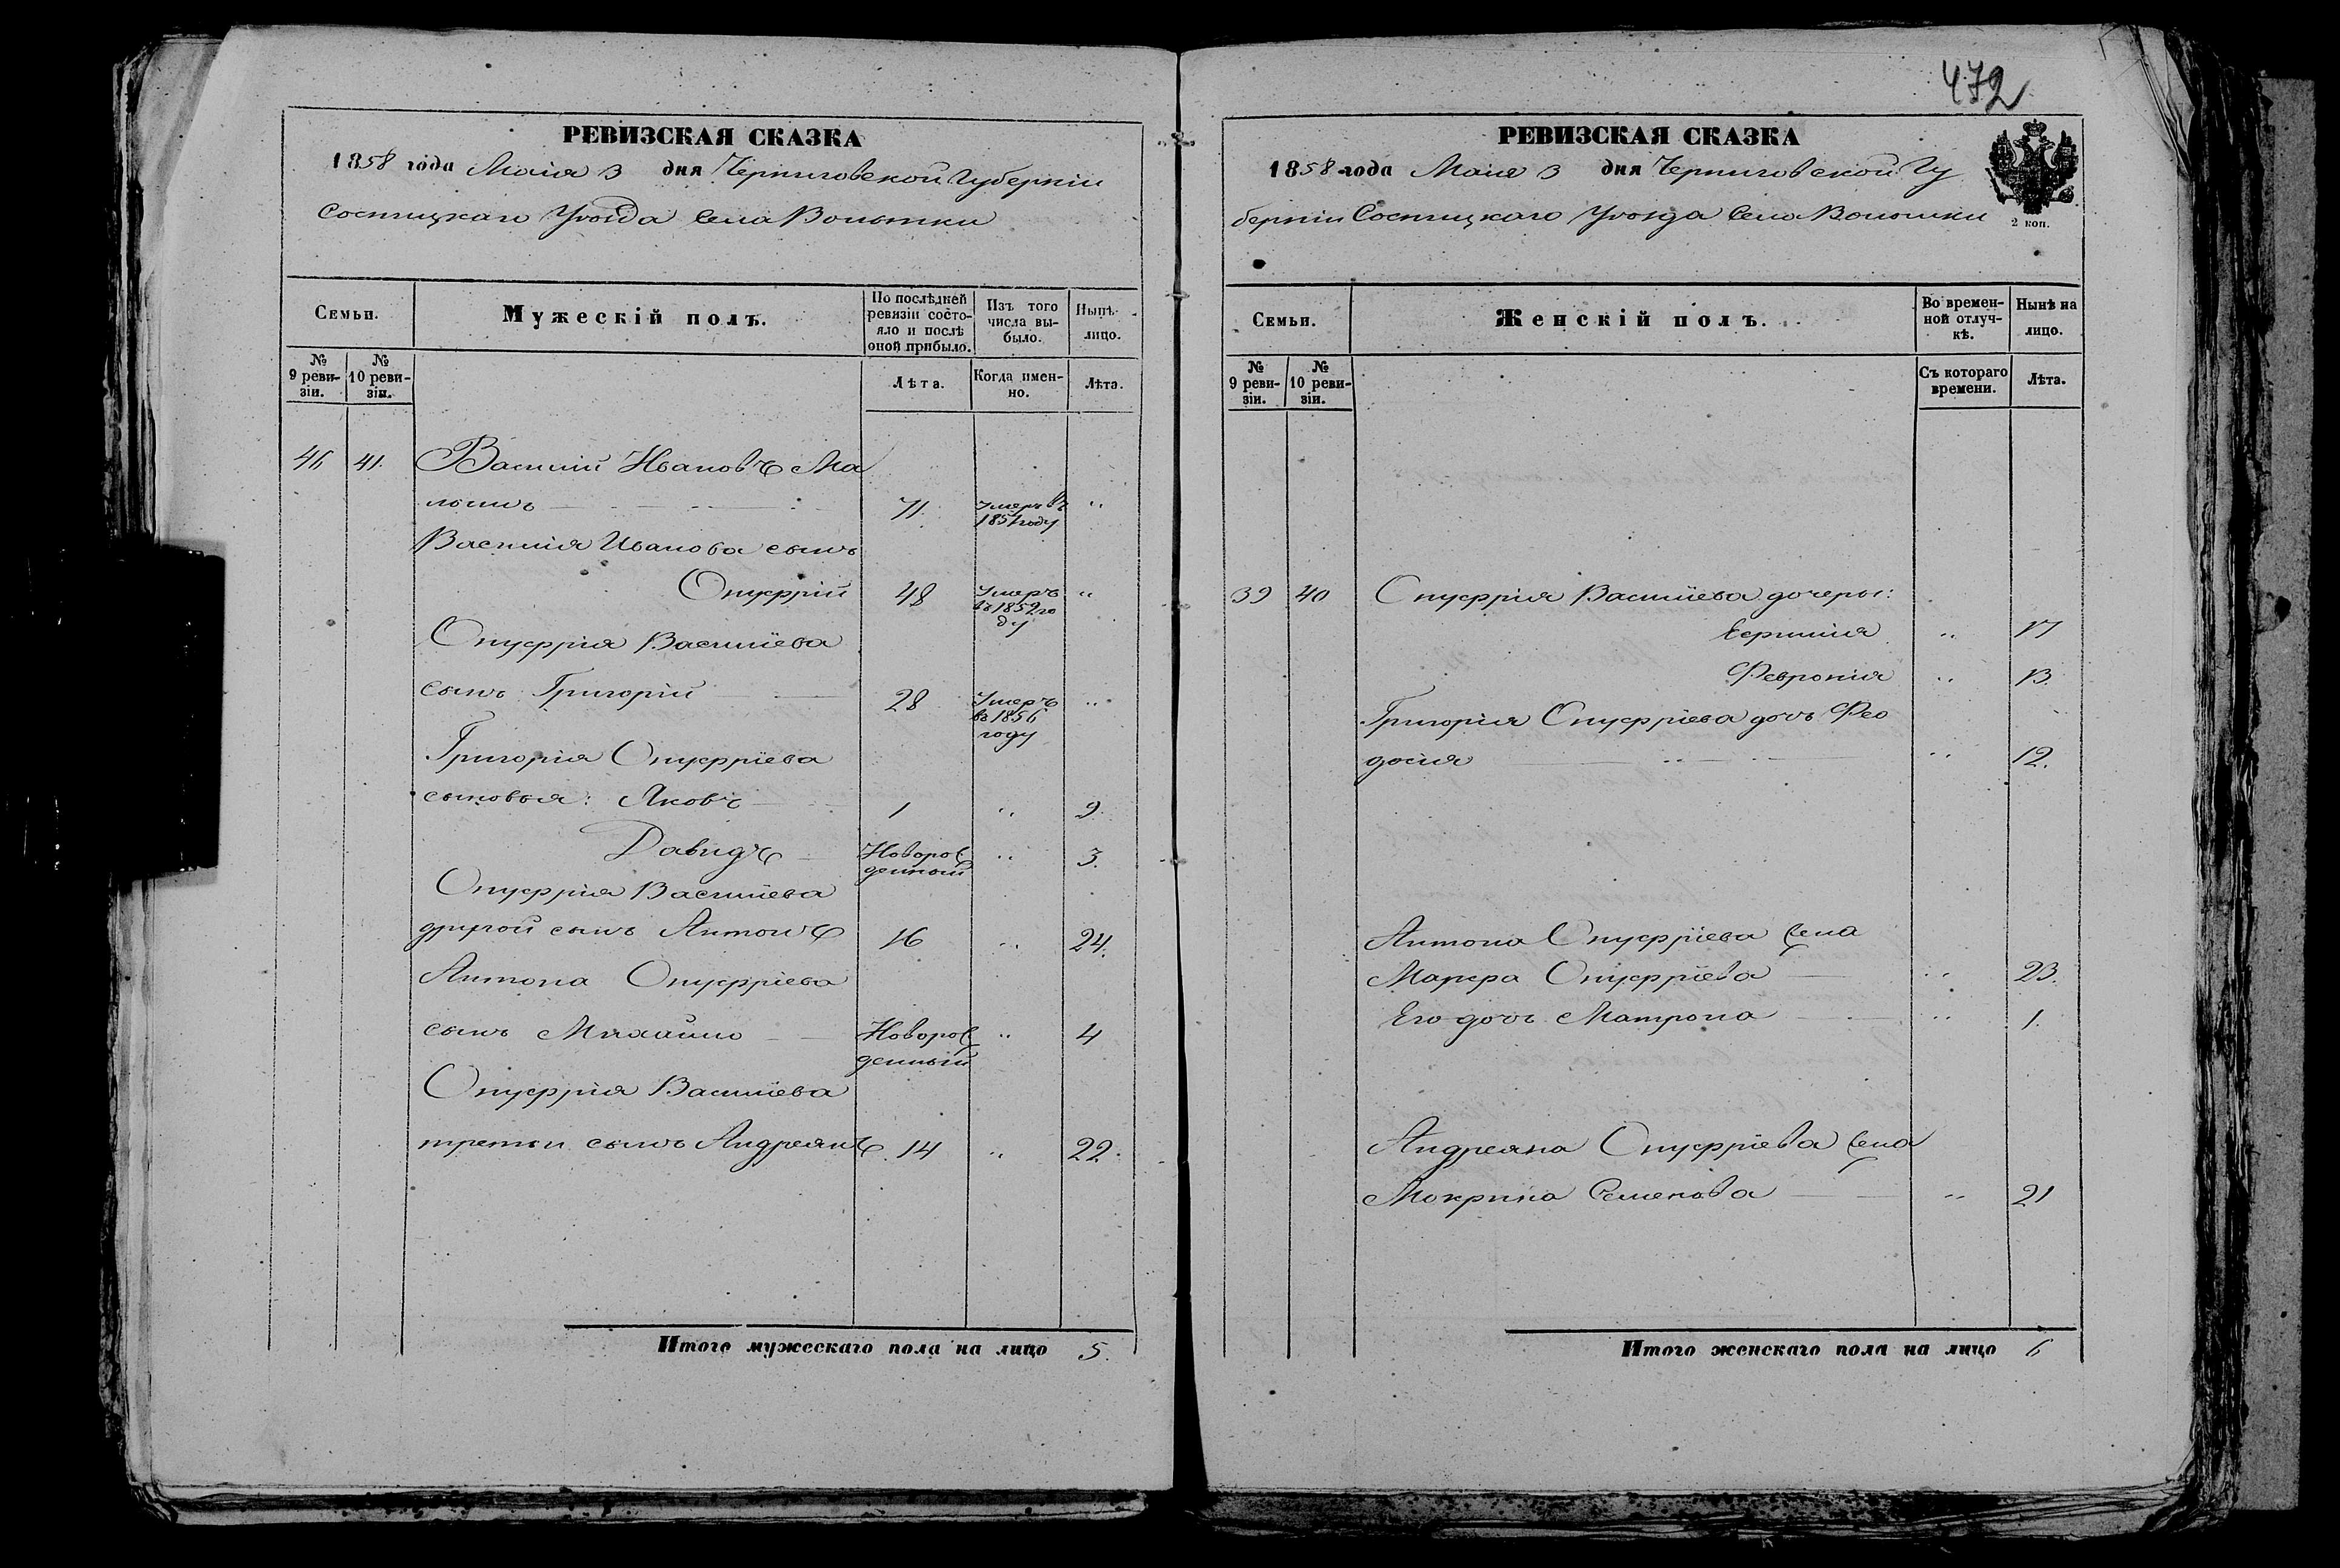 РЕВИЗСКАЯ СКАЗКА
1858 года Маія 3 дня Черниговской Губерніи
Сосницкаго Уѣзда Села Волынки
Семьи.
Мужескій полъ.
По послѣдней ревизіи состояло и послѣ оной прибыло.
Изъ того числа выбыло.
Нынѣ лицо.
№ 9 ревизіи.
№ 10 ревизіи.
Лѣта.
Когда именно.
Лѣта.
46 41. Василій Ивановъ Ма
71. Умеръ въ 1854 году "
Василія Иванова сынъ
Онуфрій 48 Умеръ въ 1852 году "
Онуфрія Василіева
сынъ Григорій 28 Умеръ въ 1856 году "
Григорія Онуфріева
сыновья: Яковъ 1 " 9.
Давидъ Новорожденный " 3.
Онуфрія Василіева
другой сынъ Антонъ 16 " 24.
Антона Онуфріева
сынъ Михайло Новорожденный " 4
Онуфрія Василіева
третьи сынъ Андреянъ 14 " 22.
Итого мужескаго пола на лицо 5.
472
РЕВИЗСКАЯ СКАЗКА
1858 года Маія 3 дня Черниговской Гу
берніи Сосницкаго Уѣзда Села Волынки
2 коп.
Семьи.
Женскій полъ.
Во временной отлучкѣ.
Нынѣ на лицо.
№ 9 ревизіи.
№ 10 ревизіи.
Съ котораго времени.
Лѣта.
39 40 Онуфрія Василіева дочеры:
" 17
Февронія " 13.
Григорія Онуфріева дочь Фео
досія " 12.
Антона Онуфріева жена
Марфа Онуфріева " 23.
Его дочь Матрона " 1.
Андреяна Онуфріева жена
Мокрина Семенова " 21
Итого женскаго пола на лицо 6